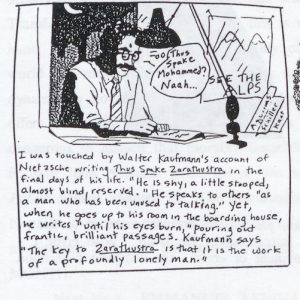 oo(Thus
Spake
Mohammed?
Naah...
SEE THE
LPS
I was touched by Walter Kaufmann's account of
Nietzsche writing Thus Spake Zarathustra in the
final days of his life. "He is shy, a little stooped,
almost blind, reserved. "He speaks to others "as
a man who has been unused to talking." Yet,
when he goes up to his room in the boarding house,
he writes "until his eyes burn," pouring out
frantic, brilliant passages. Kaufmann says
"The key to Zarathustra is that it is the work
of a profoundly lonely man."